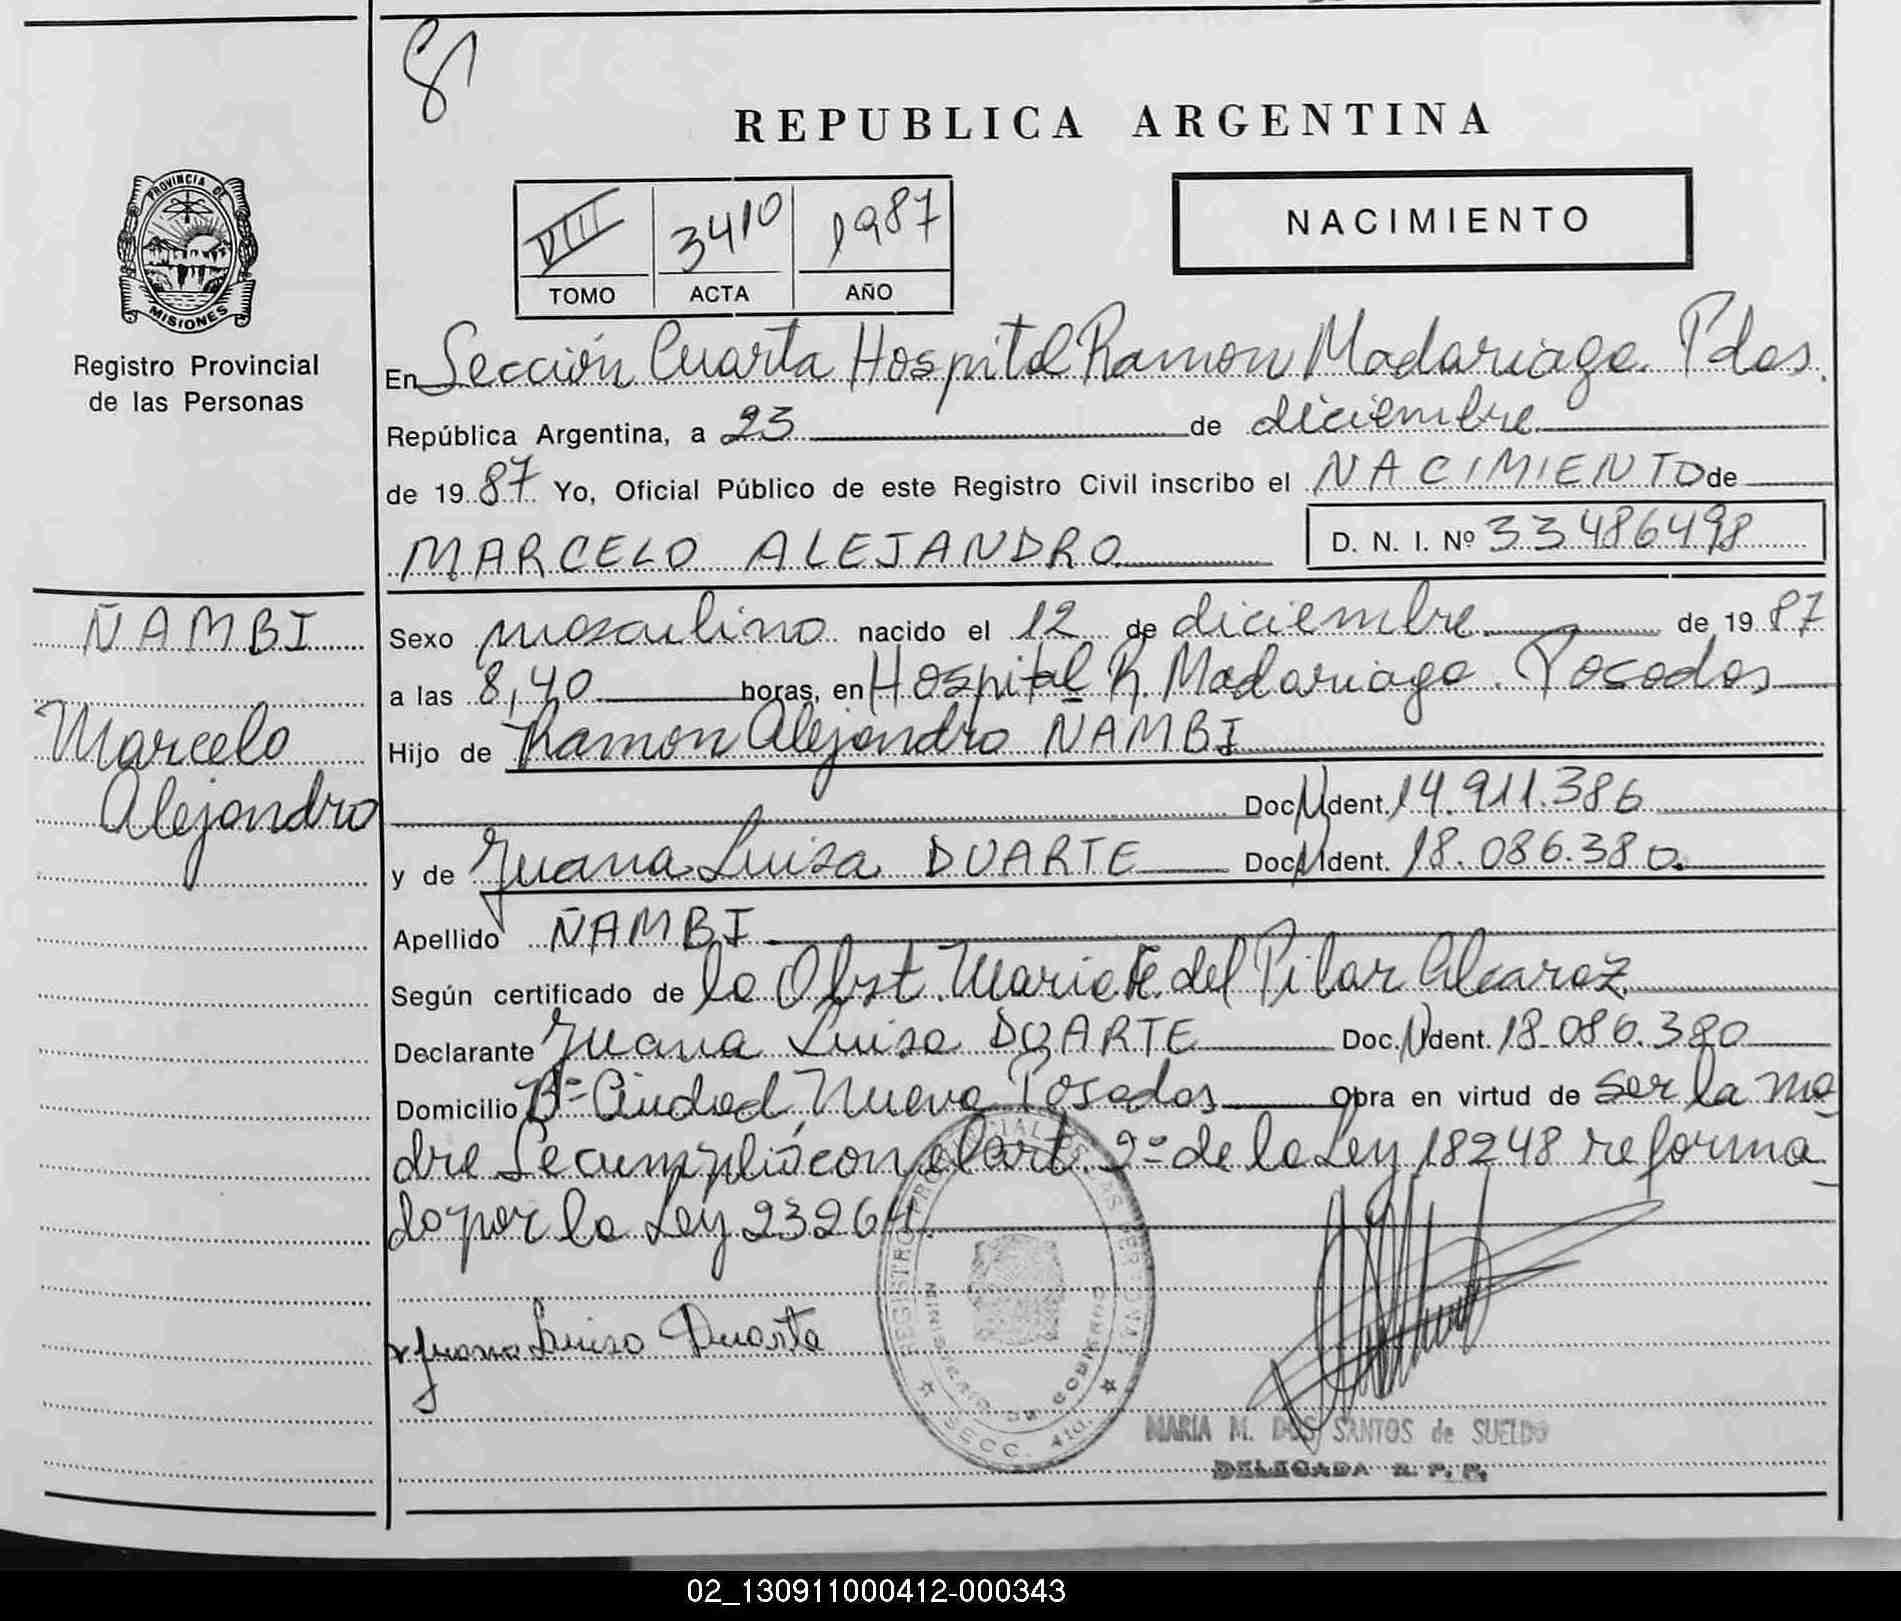 81
REPUBLICA ARGENTINA
PROVINCIA DE
MISIONES
Registro Provincial
de las Personas
VIII 3410 1987
TOMO ACTA AÑO
NACIMIENTO
En Sección Cuarta Hospital Ramon Madariaga. Pdas.
República Argentina, a 23 de diciembre
de 1987 Yo, Oficial Público de este Registro Civil inscribo el NACIMIENTO de
MARCELO ALEJANDRO D. N. I. Nº 33486498
ÑAMBI
Marcelo
Alejandro
Sexo masculino nacido el 12 de diciembre de 1987
a las 8,40 horas, en Hospital R. Madariaga. Posadas
Hijo de Ramon Alejandro ÑAMBI
Doc. Ident. 14.911.386
y de Juana Luisa DUARTE Doc. Ident. 18.086.380.
Apellido ÑAMBI
Según certificado de la Obst. Maria E. del Pilar Alcaraz
Declarante Juana Luisa DUARTE Doc. Ident. 18.086.380
Domicilio Bº Ciudad Nueva Posadas Obra en virtud de ser la ma
dre Se cumplió con el art. 2º de la Ley 18248 reforma
do por la Ley 23264.
REGISTRO PROVINCIAL DE LAS PERSONAS
MINISTERIO DE GOBIERNO
SECC. 4ta.
Juana Luisa Duarte
MARIA M. DOS SANTOS de SUELDO
DELEGADA R. P. P.
02_130911000412-000343